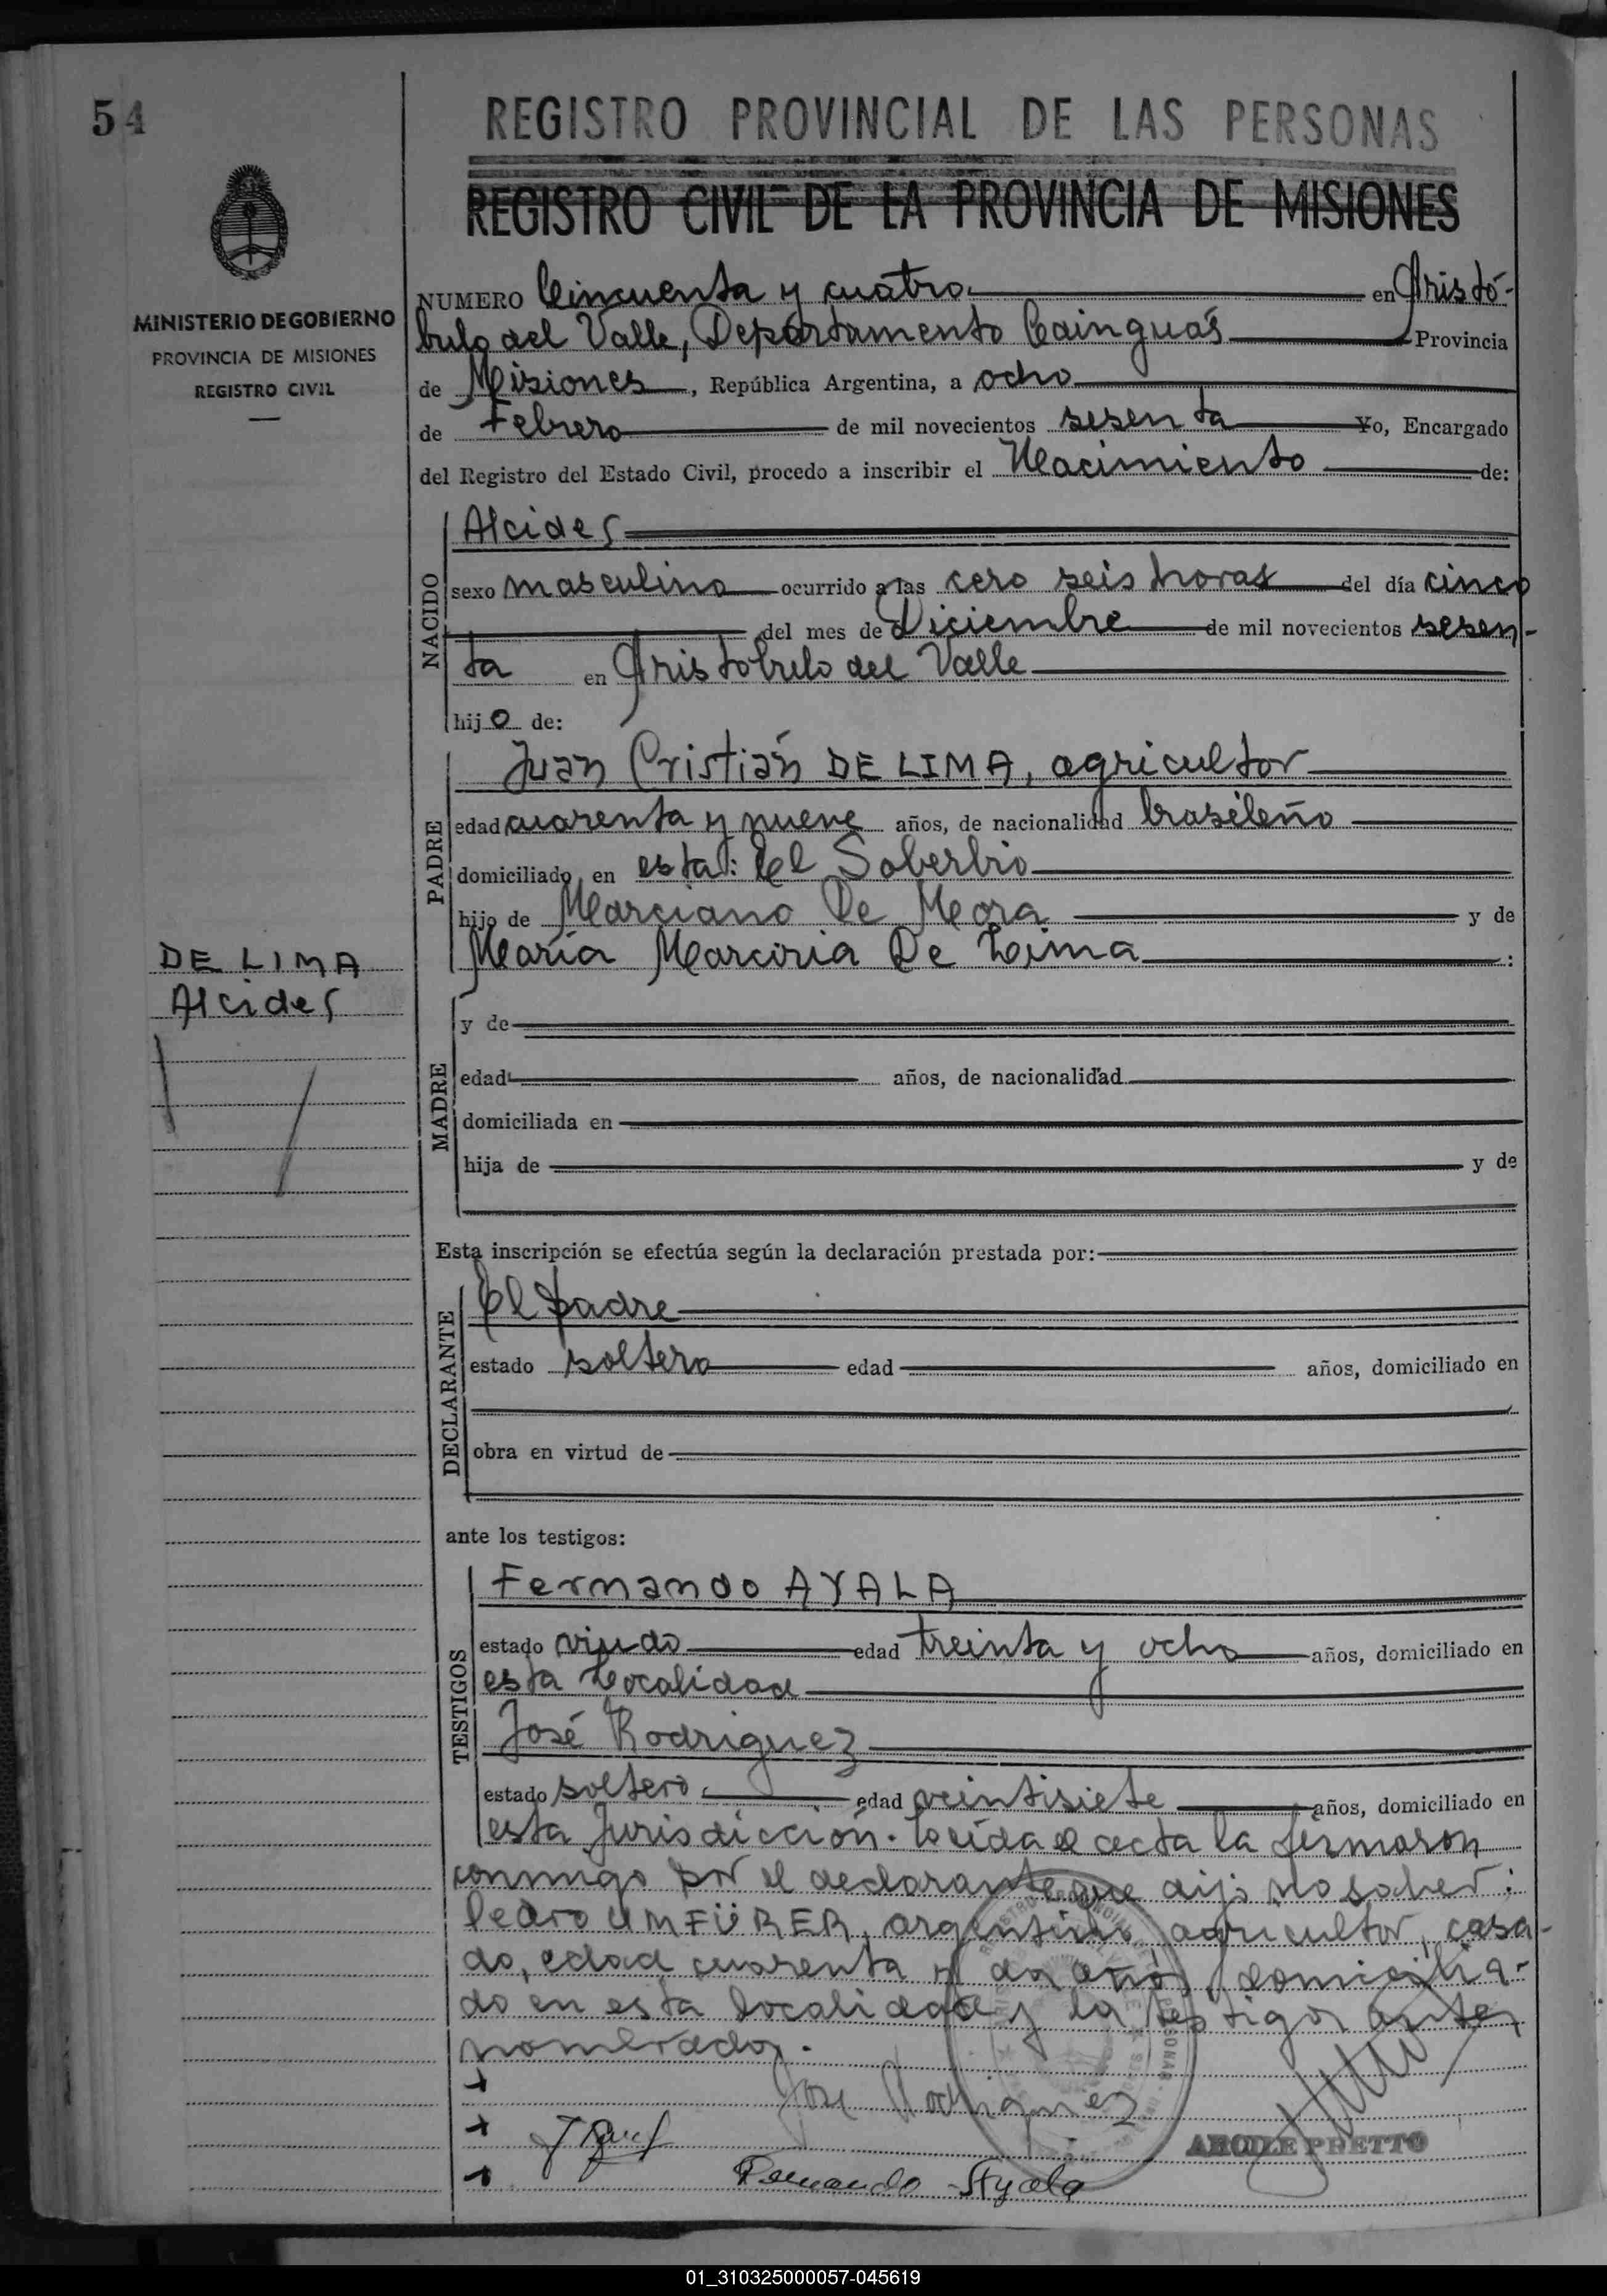 54
REGISTRO PROVINCIAL DE LAS PERSONAS
REGISTRO CIVIL DE LA PROVINCIA DE MISIONES
MINISTERIO DE GOBIERNO
PROVINCIA DE MISIONES
REGISTRO CIVIL
NUMERO Cincuenta y cuatro en Aristó-
bulo del Valle, Departamento Cainguás Provincia
de Misiones, República Argentina, a ocho
de Febrero de mil novecientos sesenta Yo, Encargado
del Registro del Estado Civil, procedo a inscribir el Nacimiento de:
NACIDO
Alcides
sexo masculino ocurrido a las cero seis horas del día cinco
del mes de Diciembre de mil novecientos sesen-
ta en Aristobulo del Valle
hijo de:
PADRE
Juan Cristián DE LIMA, agricultor
edad cuarenta y nueve años, de nacionalidad brasileño
domiciliado en esta: El Soberbio
hijo de Marciano De Mora y de
María Marciria De Lima :
DE LIMA
Alcides
MADRE
y de
edad años, de nacionalidad
domiciliada en
hija de y de
Esta inscripción se efectúa según la declaración prestada por:
DECLARANTE
El padre
estado soltero edad años, domiciliado en
obra en virtud de
ante los testigos:
TESTIGOS
Fernando AYALA
estado viudo edad treinta y ocho años, domiciliado en
esta localidad
José Rodriguez
estado soltero. edad veintisiete años, domiciliado en
esta Jurisdicción. Leída el acta la firmaron
conmigo por el declarante que dijo no saber:
Pedro UMFÜRER, argentino, agricultor, casa-
do, edad cuarenta y dos años, domicilia-
do en esta localidad y los testigos antes
nombrados.
Jose Rodriguez
ARCILE PRETTO
Fernando Ayala
01_310325000057-045619